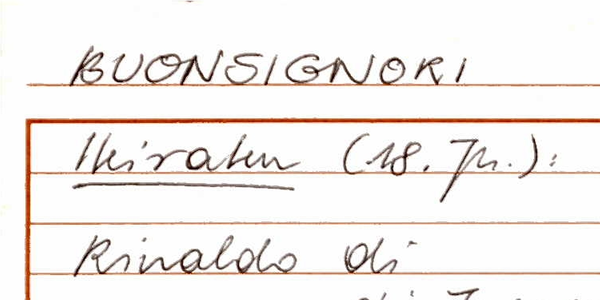 BUONSIGNORI
Heiraten (18. Jh.):
Rinaldo di